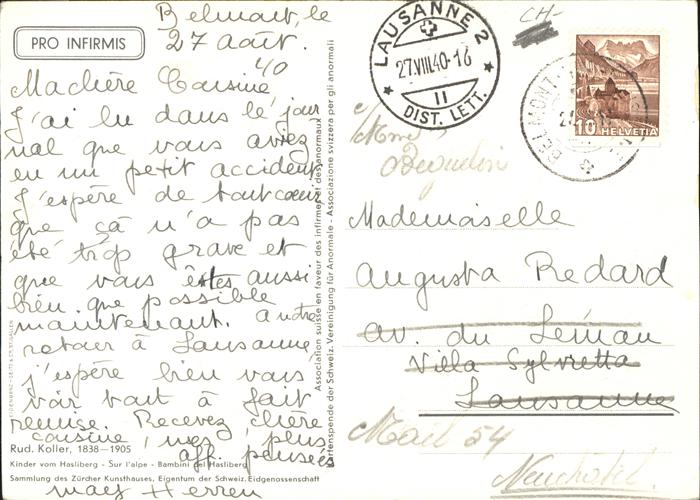 Belmont, le
27 août.
40
PRO INFIRMIS
Ma chère Cousine
J'ai lu dans le jour
nal que vous aviez
eu un petit accident
J'espère de tout coeur
que ça n'a pas
été trop grave et
que vous êtes aussi
bien que possible
maintenant. A notre
retour à Lausanne
j'espère bien vous
voir tout à fait
remise. Recevez chère
cousine, mes plus
aff. pensées
May Herren
Rud. Koller, 1838–1905
Kinder vom Hasliberg - Sur l'alpe - Bambini del Hasliberg
Sammlung des Zürcher Kunsthauses. Eigentum der Schweiz. Eidgenossenschaft
Association suisse en faveur des infirmes et des anormaux - Associazione svizzera per gli anormali
Kartenspende der Schweiz. Vereinigung für Anormale
LAUSANNE 2
27.VIII.40-16
11
DIST. LETT.
CH-
10 HELVETIA
BELMONT
c/
Mme
Béguelin
Mademoiselle
Augusta Redard
av. du Léman
Villa Sylvretta
Lausanne
Mail 54
Neuchâtel